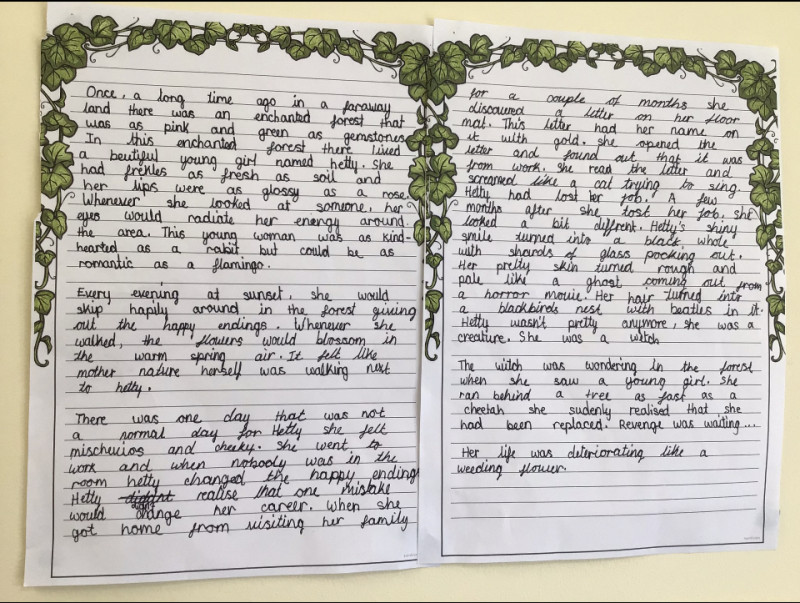 Once, a long time ago in a faraway
land there was an enchanted forest that
was as pink and green as gemstones.
In this enchanted forest there lived
a beutiful young girl named hetty. She
had frekles as fresh as soil and
her lips were as glossy as a rose.
Whenever she looked at someone, her
eyes would radiate her energy around.
the area. This young woman was as kind-
hearted as a rabit but could be as
romantic as a flamingo.
Every evening at sunset, she would
skip happily around in the forest giving
out the happy endings. Whenever she
walked, the flowers would blossom in
the warm spring air. It felt like
mother nature herself was walking next
to hetty.
There was one day that was not
a normal day for Hetty she felt
mischeivios and cheeky. She went to
work and when nobody was in the
room hetty changed the happy endings
Hetty didn't realise that one mistake
would change her career. When she
got home from visiting her family
for a couple of months she
discovered a letter on her floor
mat. This letter had her name on
it with gold. She opened the
letter and found out that it was
from work. She read the letter and
screamed like a cat trying to sing.
Hetty had lost her job. A few
months after she lost her job, she
looked a bit diffrent. Hetty's shiny
smile turned into a black, whole
with shards of glass pocking out.
Her pretty skin turned rough and
pale like a ghost coming out from
a horror movie. Her hair turned into
a blackbirds nest with beatles in it.
Hetty wasn't pretty anymore, she was a
creature. She was a witch
The witch was wondering in the forest
when she saw a young girl. She
ran behind a tree as fast as a
cheetah she sudenly realised that she
had been replaced. Revenge was waiting...
Her life was deteriorating like a
weeding flower.